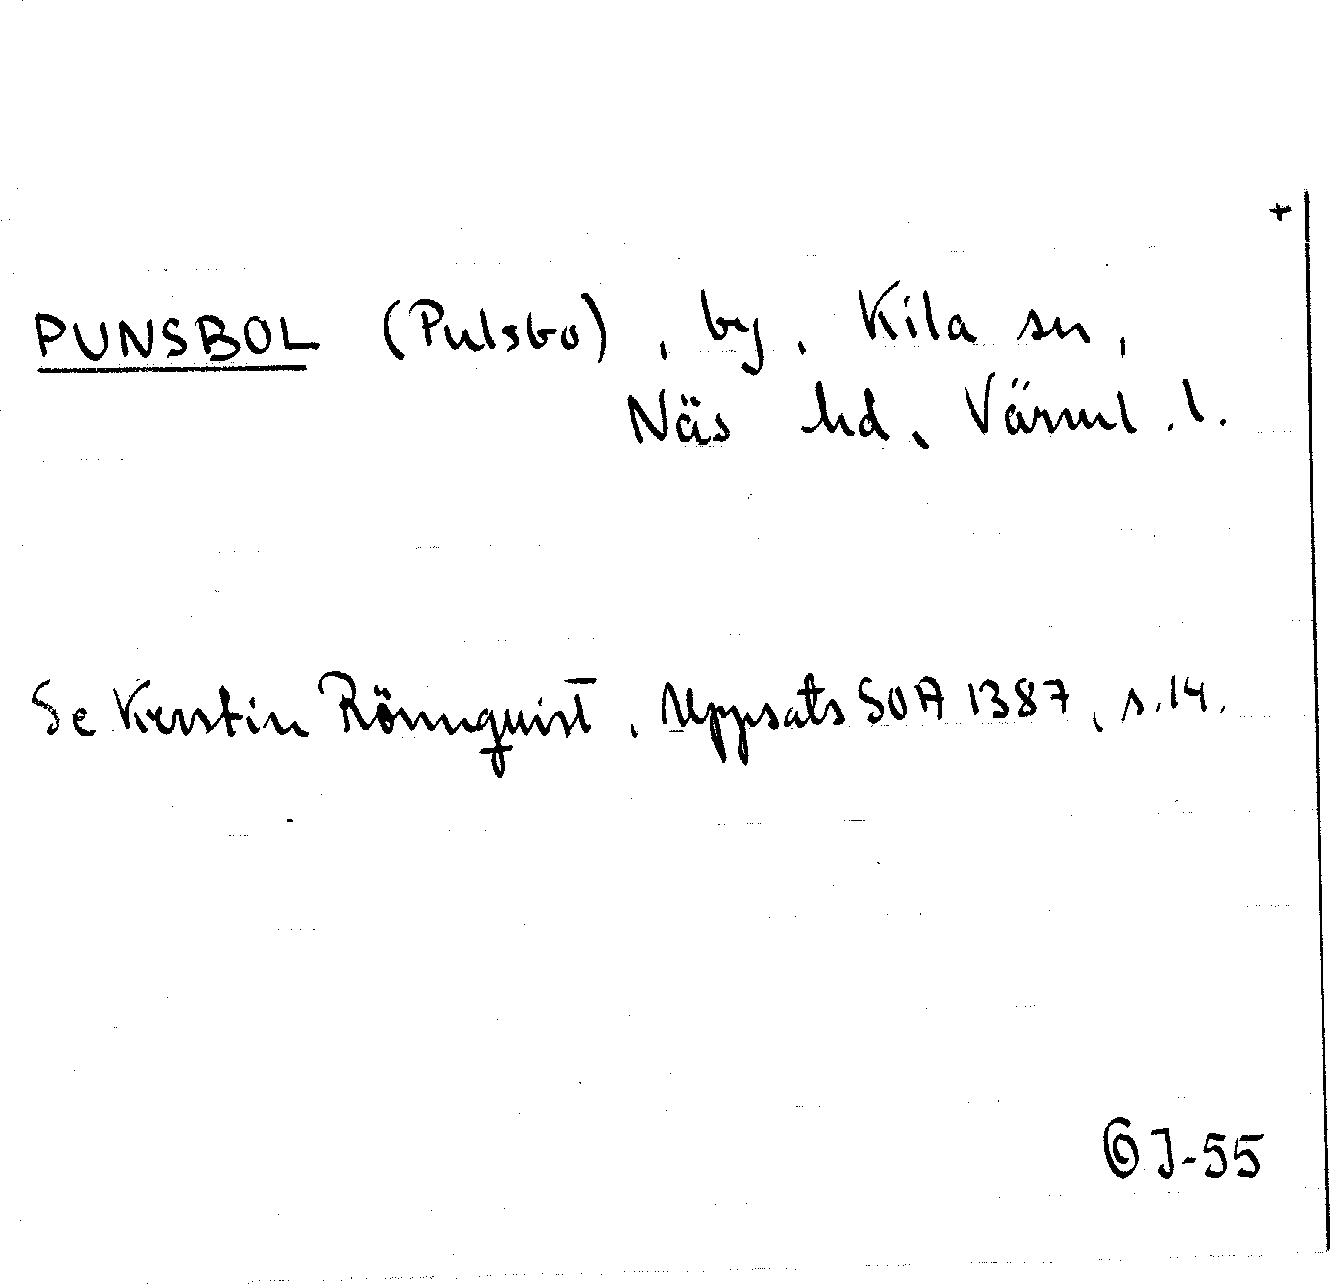 +
PUNSBOL (Pulsbo), by, Kila sn,
Näs hd, Värml. l.
Se Kerstin Rönnquist, Uppsats SOA 1387, s. 14.
J-55